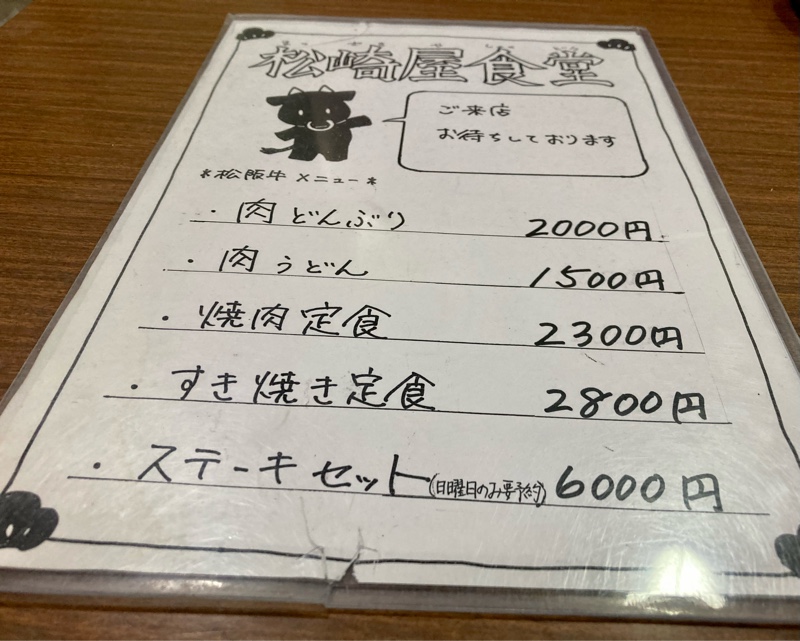 松崎屋食堂
ご来店
お待ちしております
*松阪牛メニュー*
・肉どんぶり 2000円
・肉うどん 1500円
・焼肉定食 2300円
・すき焼き定食 2800円
・ステーキセット(日曜日のみ要予約) 6000円